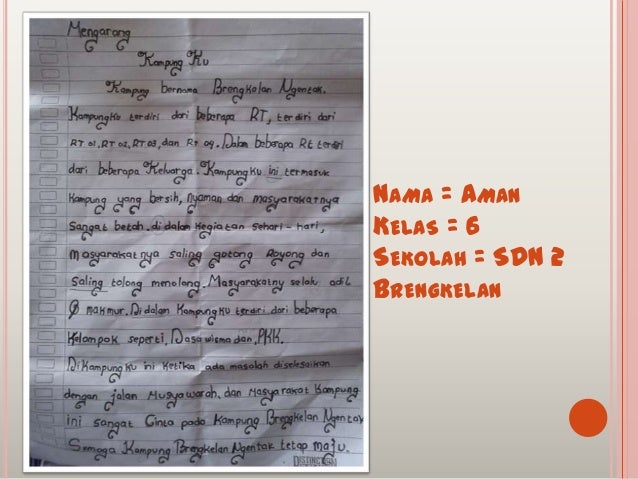 Mengarang
Kampung Ku
Kampung bernama Brengkelan Ngentak.
Kampungku terdiri dari beberapa RT, terdiri dari
RT 01, RT 02, RT 03, dan RT 04. Dalam beberapa Rt terdiri
dari beberapa Keluarga. Kampungku ini termasuk
Kampung yang bersih, nyaman dan masyarakatnya
Sangat betah. di dalam kegiatan sehari-hari,
Masyarakatnya saling gotong Royong dan
Saling tolong menolong. Masyarakatny selalu adil
& makmur. Di dalam Kampungku terdiri dari beberapa
Kelompok seperti. Dasawisma dan. PKK.
Di Kampungku ini ketika ada masalah diselesaikan
dengan jalan Musyawarah, dan Masyarakat Kampung
ini sangat Cinta pada Kampung Brengkelan Ngentak
Semoga Kampung Brengkelan Ngentak tetap maju.
DISTINCTION
Nama = Aman
Kelas = 6
Sekolah = SDN 2
Brengkelan